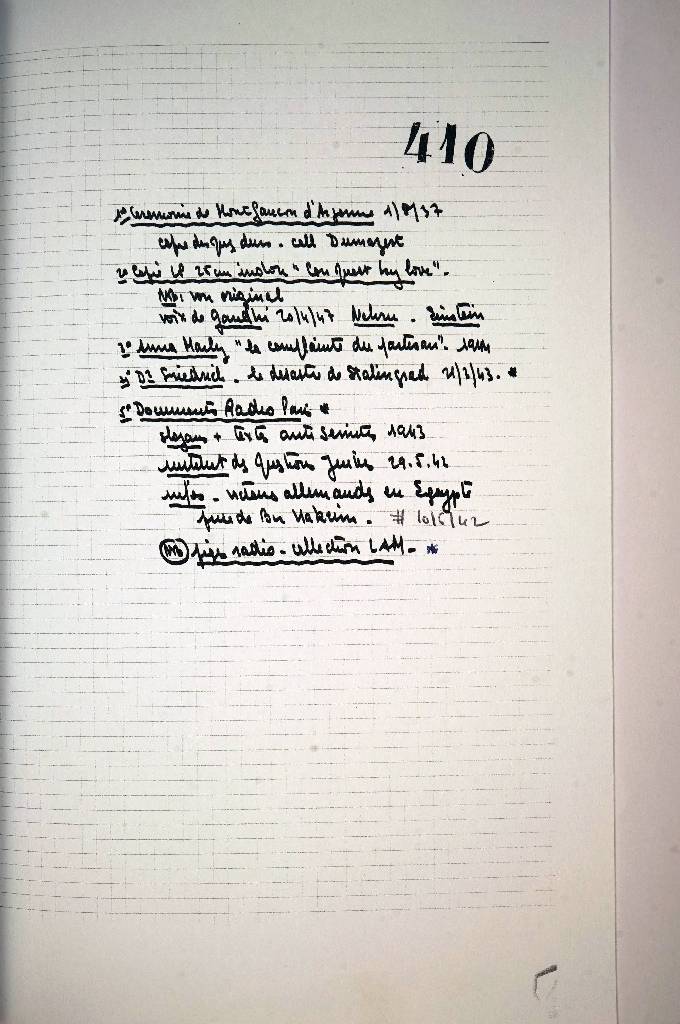 410
1° Ceremonie de Montfaucon d'Argonne 1/8/37
copie des dues. coll Dumazert
2° Copie LP 25 cm indou "Conquest by love".
NB: von original
voix de Gandhi 20/4/47 Nehru. Einstein
3° Anna Marly "la complainte du partisan". 1944
4° Dr Friedrich. le desastre de Stalingrad 21/2/43. *
5° Documents Radio Paris *
slogans + texte anti Semites 1943
institut des questions Juives 29.5.42
infos. victoires allemandes en Egypte
prise de Bir Hakeim. # 10/6/42
NB pige radio. collection LAM. *